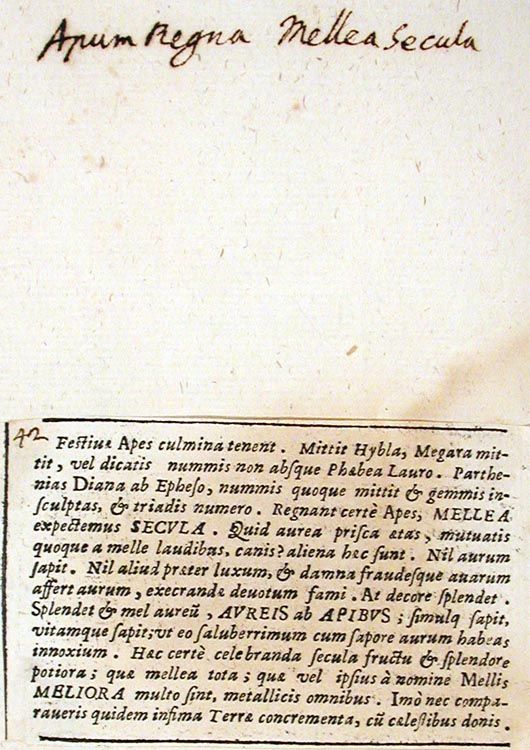 Apum Regna Mellea Secula
42
Festiuæ Apes culmina tenent. Mittit Hybla, Megara mit-
tit, vel dicatis nummis non absque Phæbea Lauro. Parthe-
nias Diana ab Epheso, nummis quoque mittit & gemmis in-
sculptas, & triadis numero. Regnant certè Apes, MELLEA
expectemus SECVLA. Quid aurea prisca ætas, mutuatis
quoque a melle laudibus, canis? aliena hæc sunt. Nil aurum
sapit. Nil aliud præter luxum, & damna fraudesque auarum
affert aurum, execrandæ deuotum fami. At decore splendet.
Splendet & mel aureũ, AVREIS ab APIBVS; simulq sapit,
vitamque sapit; vt eo saluberrimum cum sapore aurum habeas
innoxium. Hæc certè celebranda secula fructu & splendore
potiora; quæ mellea tota; quæ vel ipsius à nomine Mellis
MELIORA multo sint, metallicis omnibus. Imò nec compa-
raueris quidem infima Terræ concrementa, cũ cælestibus donis.